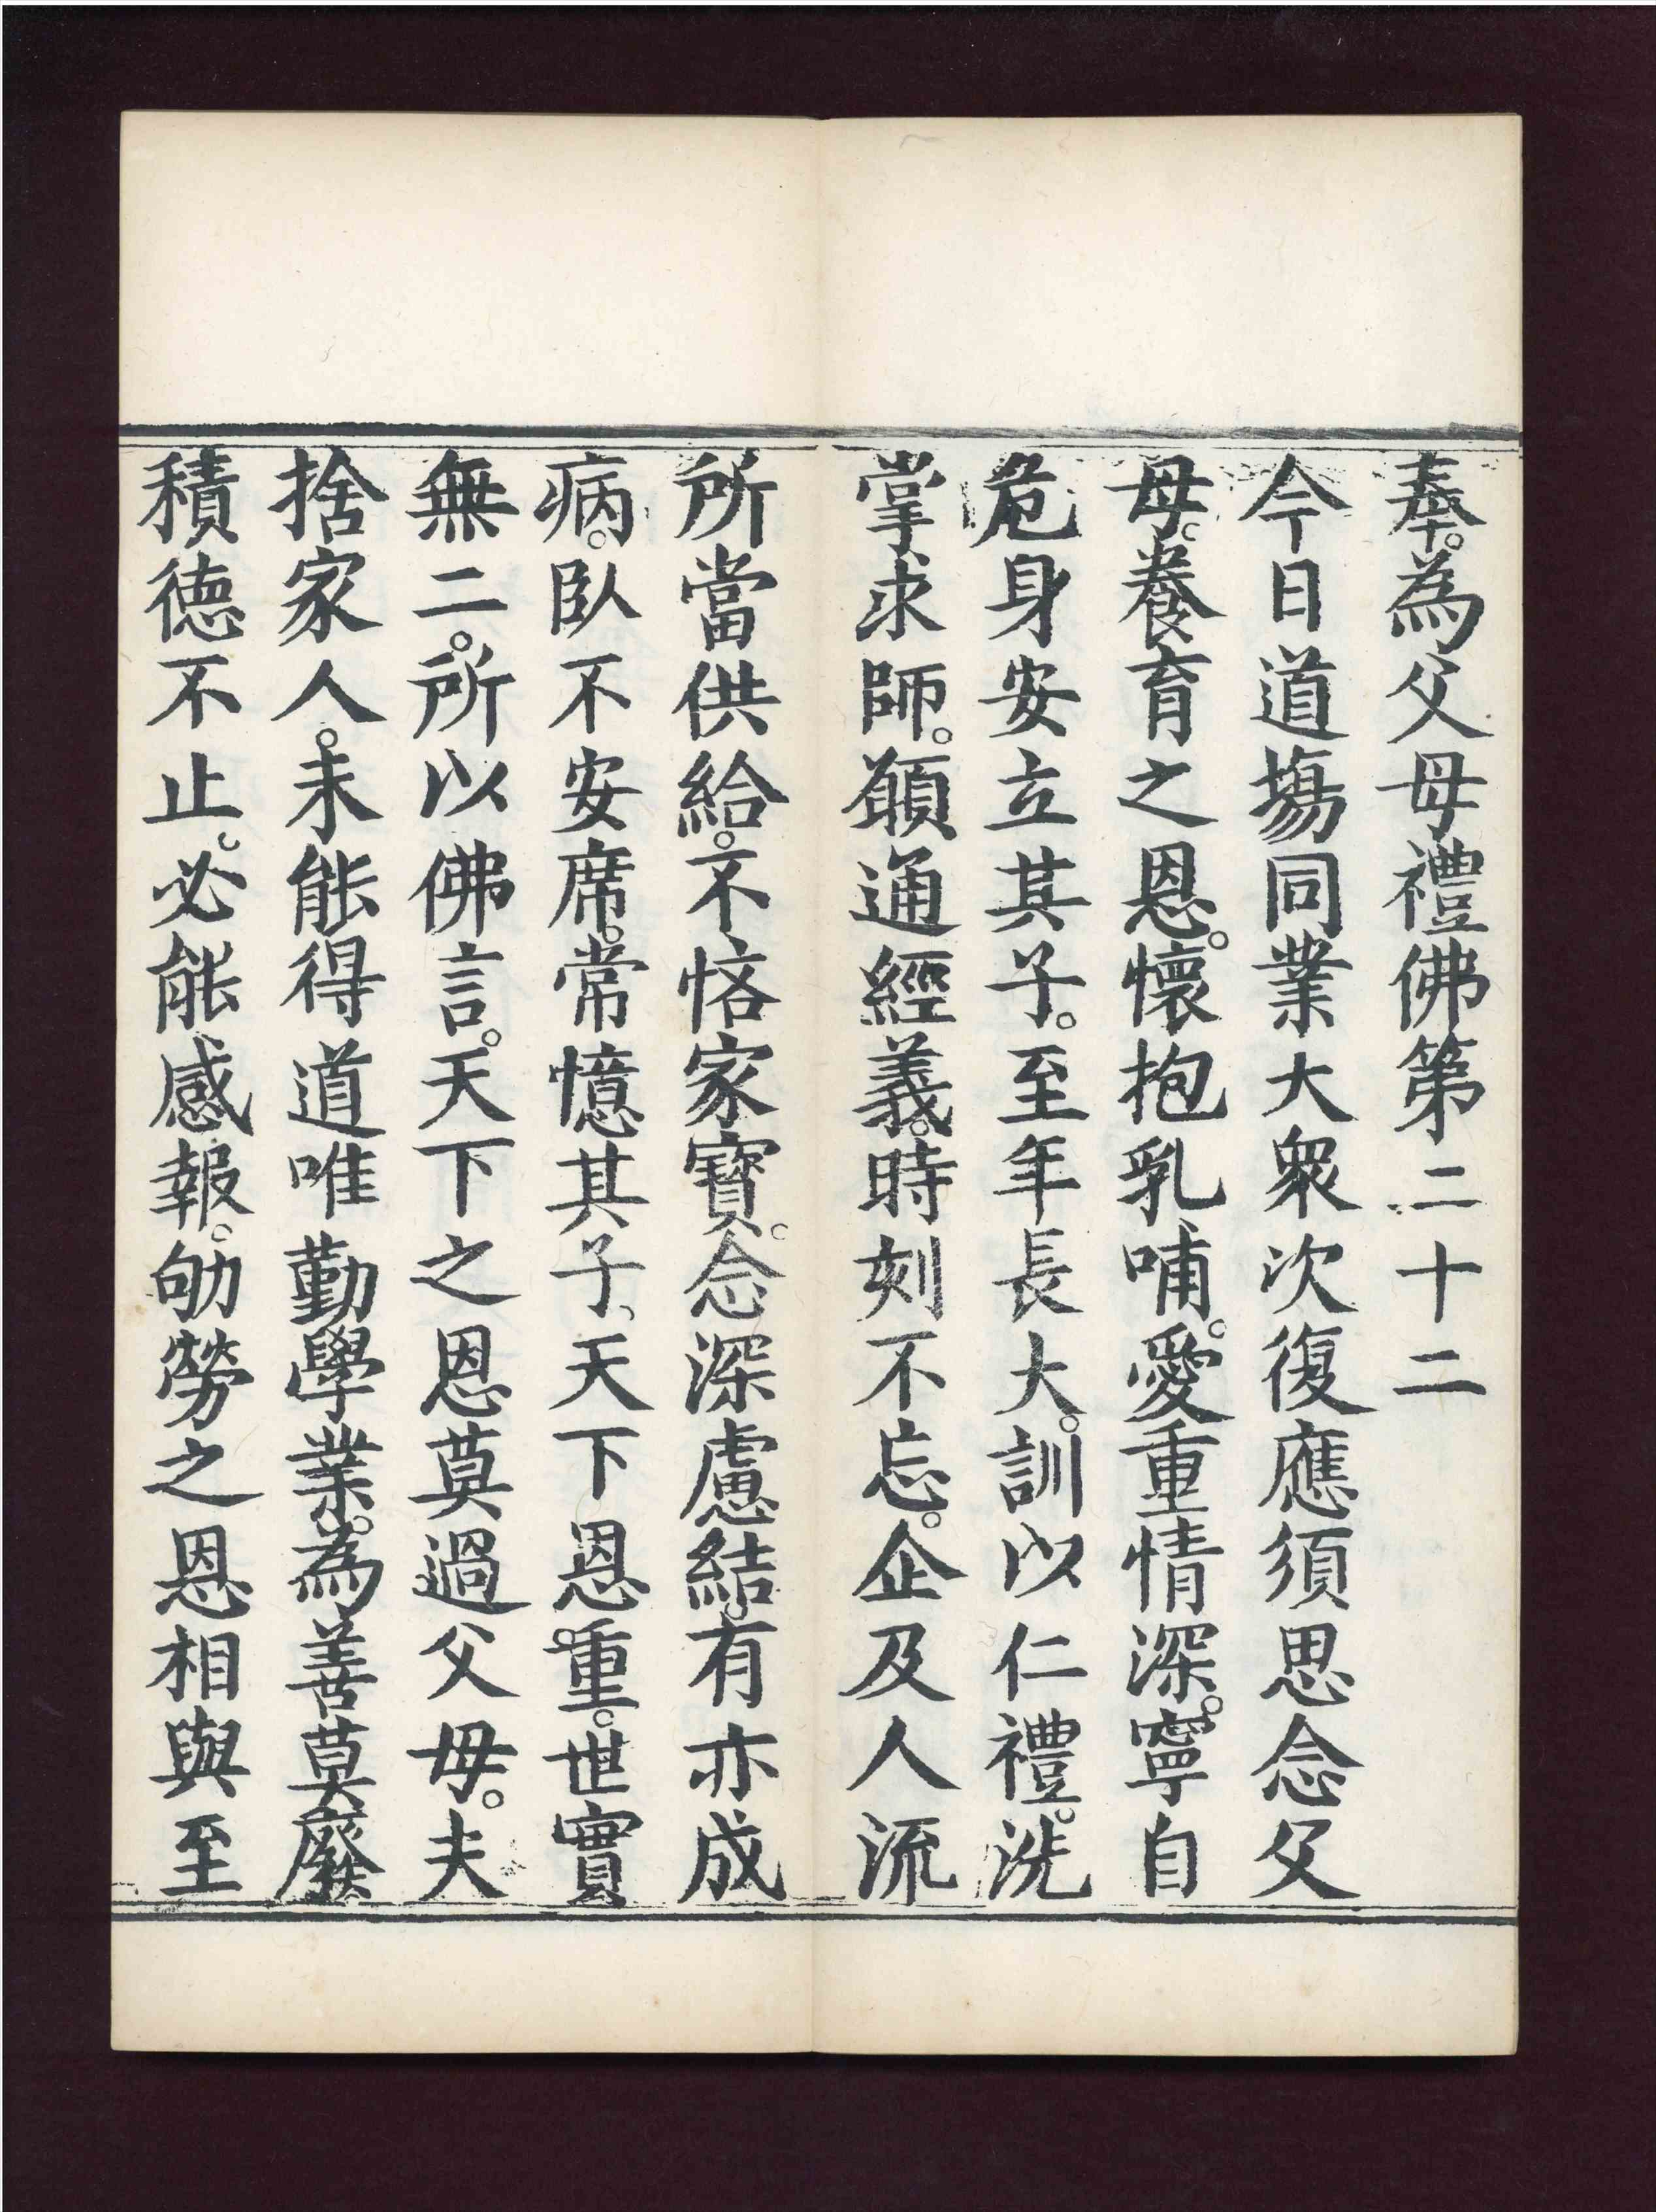 奉。為父母禮佛第二十二
今日道場同業大眾次復應須思念父
母。養育之恩。懷抱乳哺。愛重情深。寧自
危身安立其子。至年長大。訓以仁禮。洗
掌求師。願通經義。時刻不忘。企及人流
所當供給。不悋家寶。念深慮結。有亦成
病。臥不安席。常憶其子、天下恩。重。世實
無二。所以佛言。天下之恩莫過父母。夫
捨家人。未能得道唯勤學業。為善莫廢
積德不止。必能感報。劬勞之恩相與至